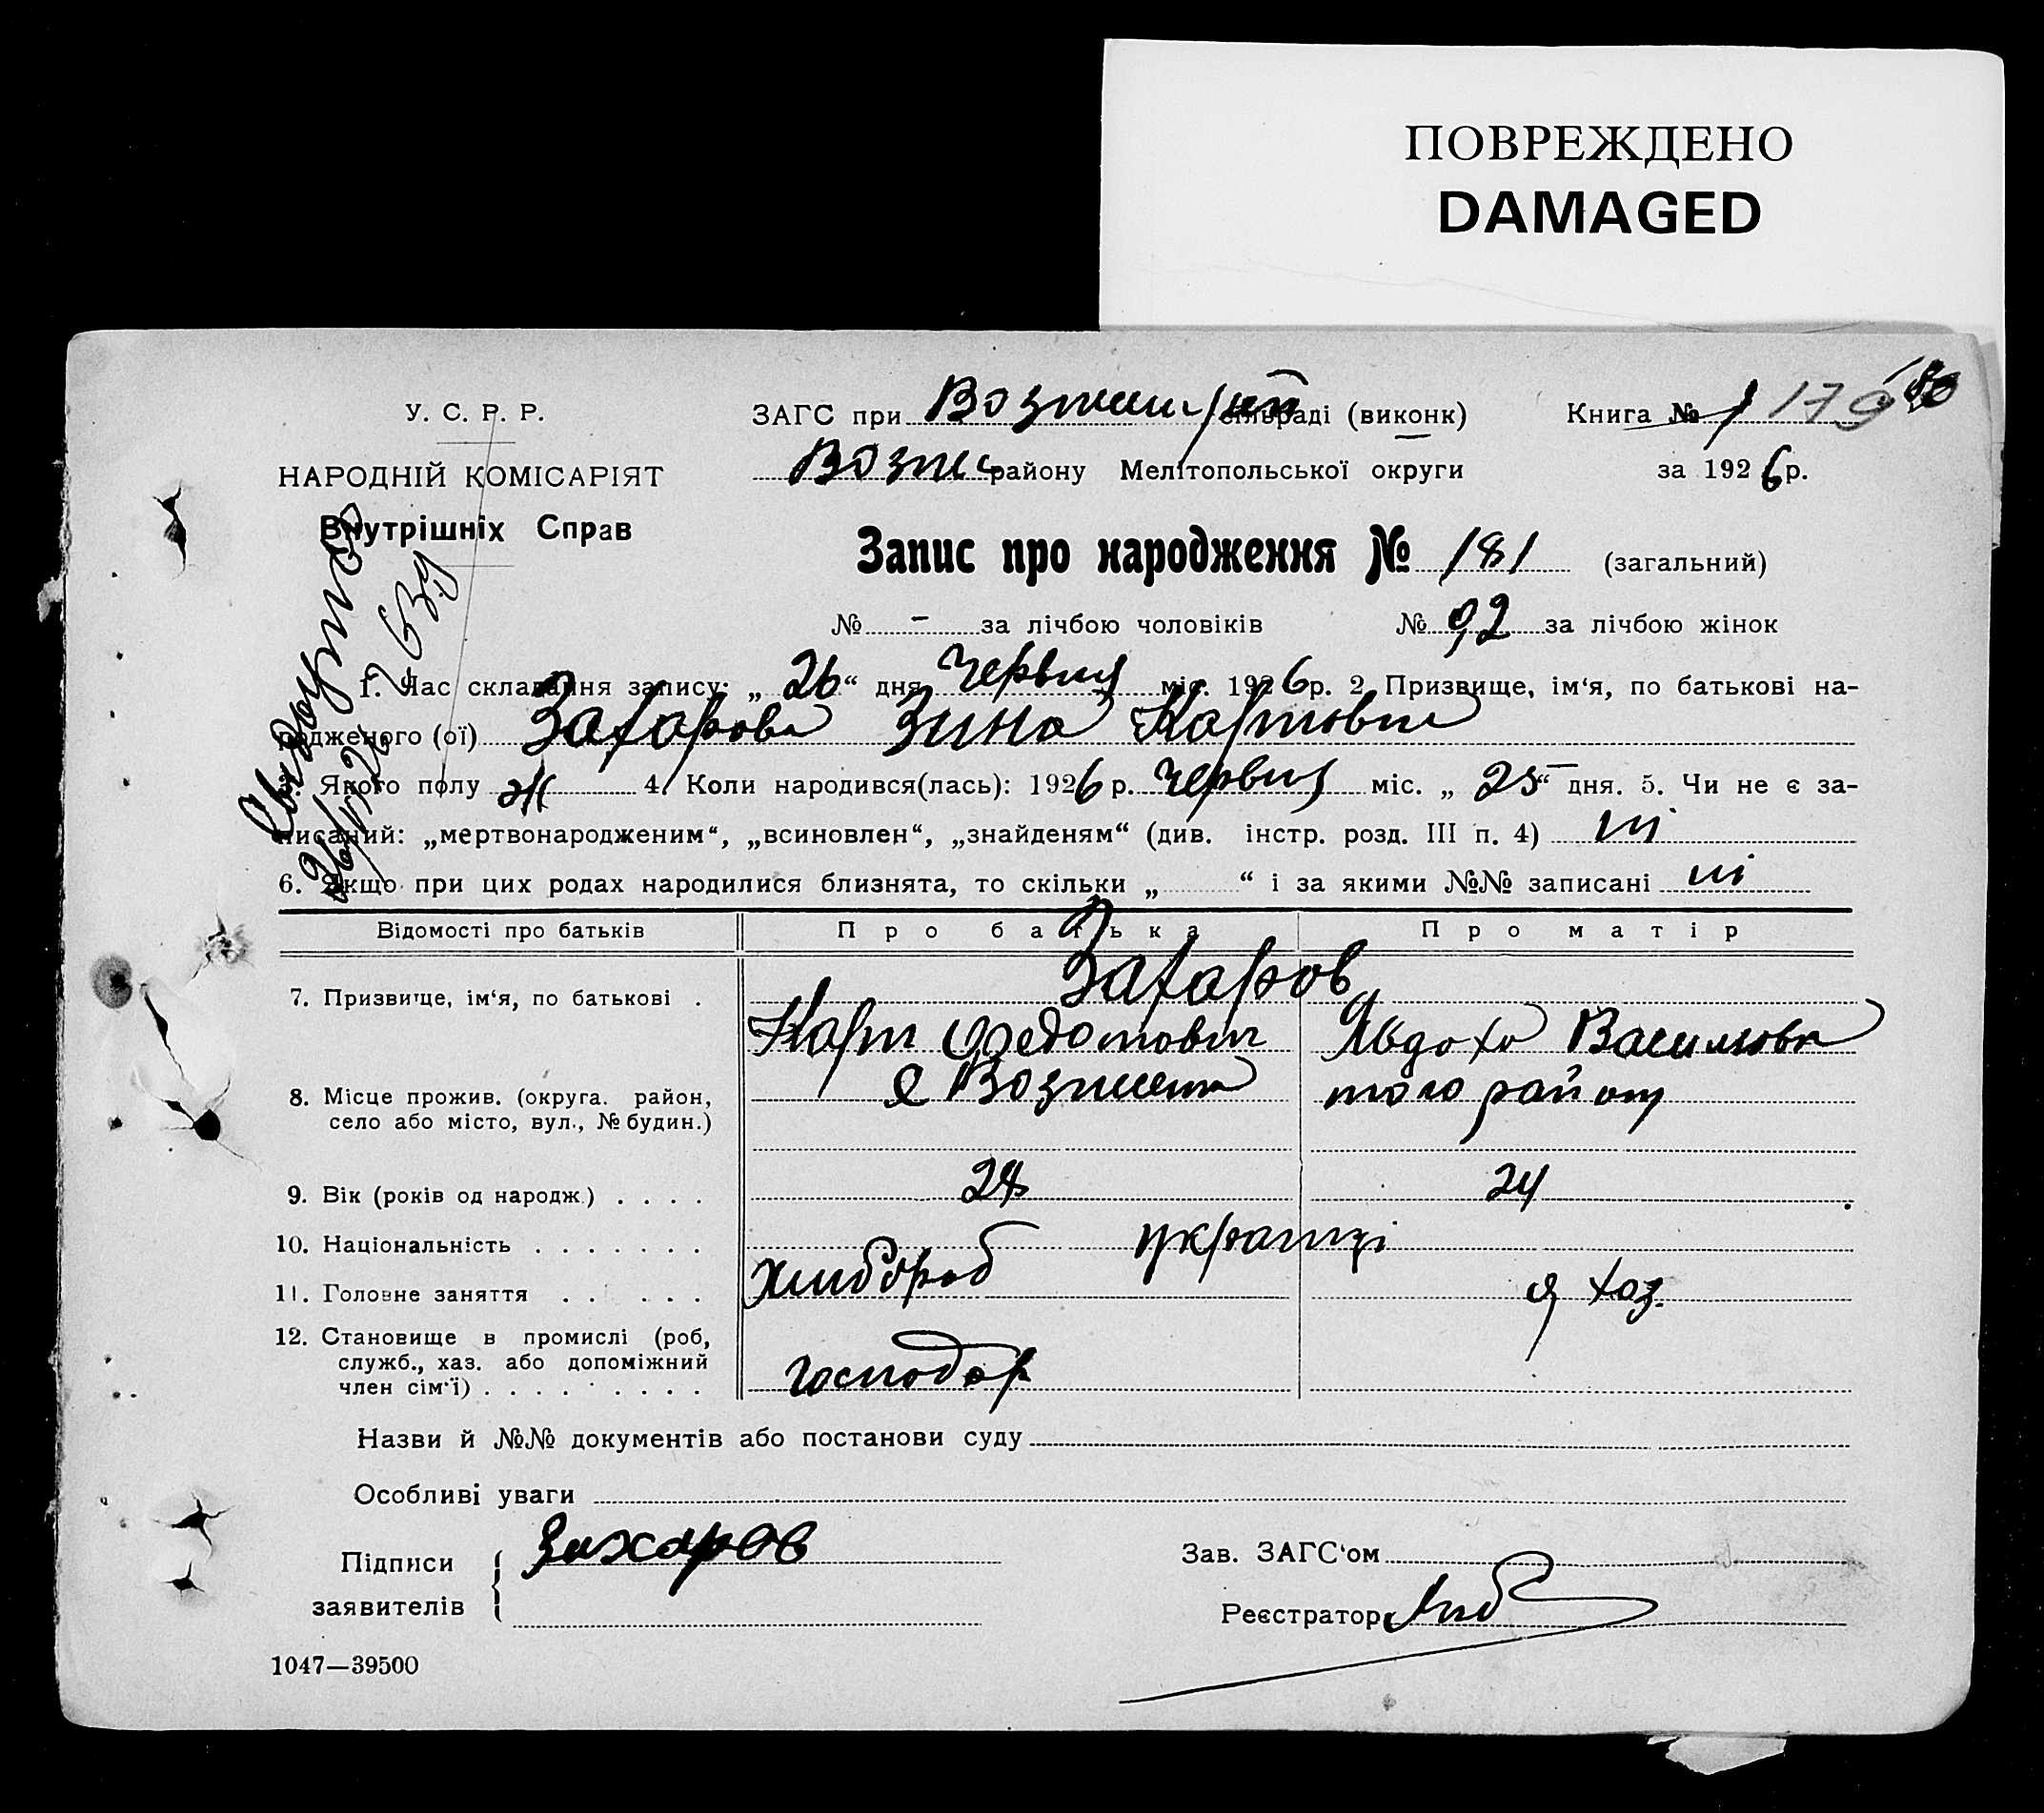 ПОВРЕЖДЕНО
DAMAGED
У. С. Р. Р.
НАРОДНІЙ КОМІСАРІЯТ
Внутрішніх Справ
ЗАГС при сільраді (виконк)
району Мелітопольської округи
Книга № 1 179
за 1926 р.
Запис про народження № 181 (загальний)
№ - за лічбою чоловіків № 92 за лічбою жінок
1. Час складання запису: „ 26 “ дня червня міс. 1926 р. 2. Призвище, ім‘я, по батькові на-
родженого (ої) Захарова Зина Карповна
3. Якого полу ж 4. Коли народився(лась): 1926 р. червня міс. „ 25 “ дня. 5. Чи не є за-
писаний: „мертвонародженим“, „всиновлен“, „знайденям“ (див. інстр. розд. III п. 4) ні
6. Якщо при цих родах народилися близнята, то скільки „ “ і за якими №№ записані ні
Відомості про батьків Про батька Про матір
Захаров
7. Призвище, ім‘я, по батькові .
Карп Федотович Явдоха Василювна
8. Місце прожив. (округа. район,
село або місто, вул., № будин.)
того району
9. Вік (років од народж.) . . . . 28 24
10. Національність . . . . . . . українці
11. Головне заняття . . . . . хлібороб хаз.
12. Становище в промислі (роб,
служб., хаз. або допоміжний
член сім‘ї) . . . . . . . . . господар
Назви й №№ документів або постанови суду
Особливі уваги
Підписи
заявителів
Захаров
Зав. ЗАГС‘ом
Реєстратор
1047—39500